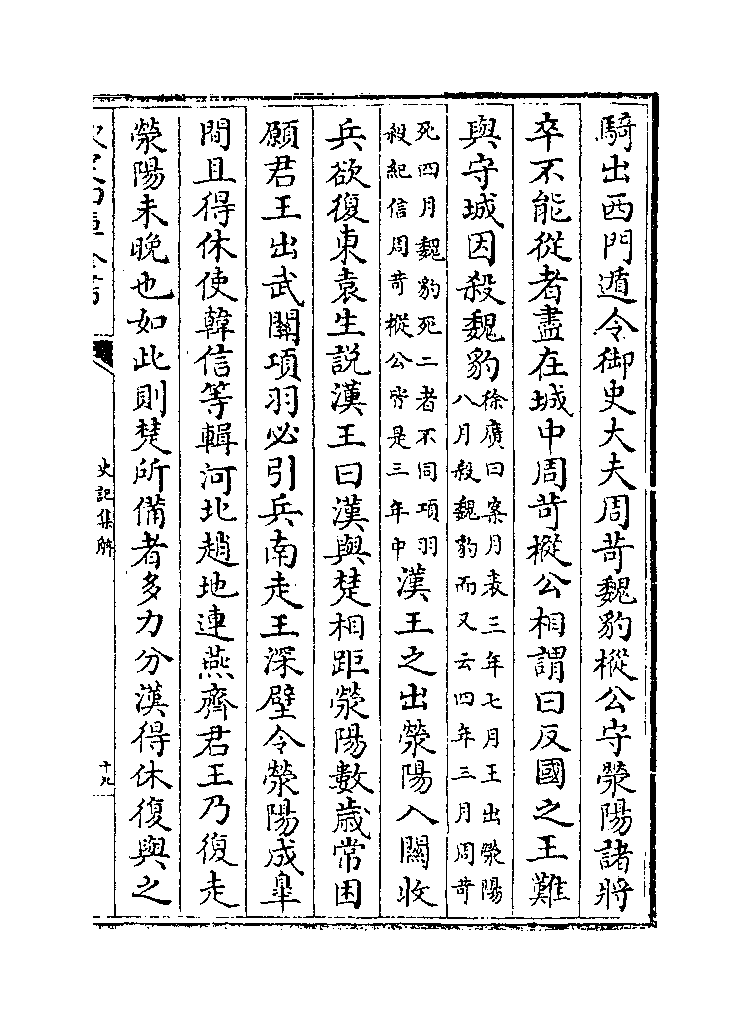 騎出西門遁令御史大夫周苛魏豹樅公守滎陽諸將
卒不能從者盡在城中周苛樅公相謂曰反國之王難
與守城因殺魏豹徐廣曰案月表三年七月王出滎陽
八月殺魏豹而又云四年三月周苛
死四月魏豹死二者不同項羽
殺紀信周苛樅公皆是三年中漢王之出滎陽入關收
兵欲復東袁生説漢王曰漢與楚相距滎陽數歳常困
願君王出武關項羽必引兵南走王深壁令滎陽成臯
間且得休使韓信等輯河北趙地連燕齊君王乃復走
滎陽未晚也如此則楚所備者多力分漢得休復與之
史記集解
十九